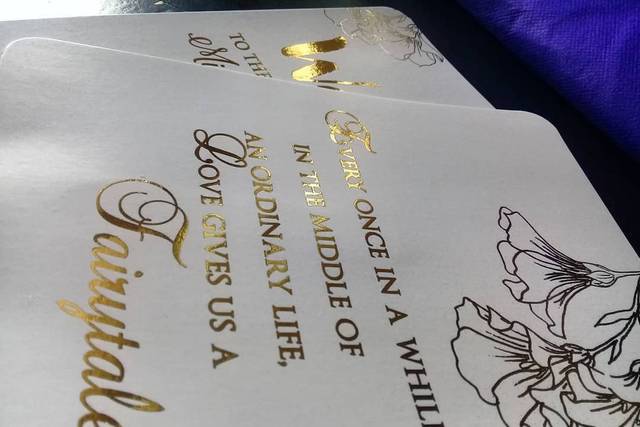 EVERY ONCE IN A WHIL
IN THE MIDDLE OF
AN ORDINARY LIFE,
LOVE GIVES US A
Fairytale
W
TO THE
Mi